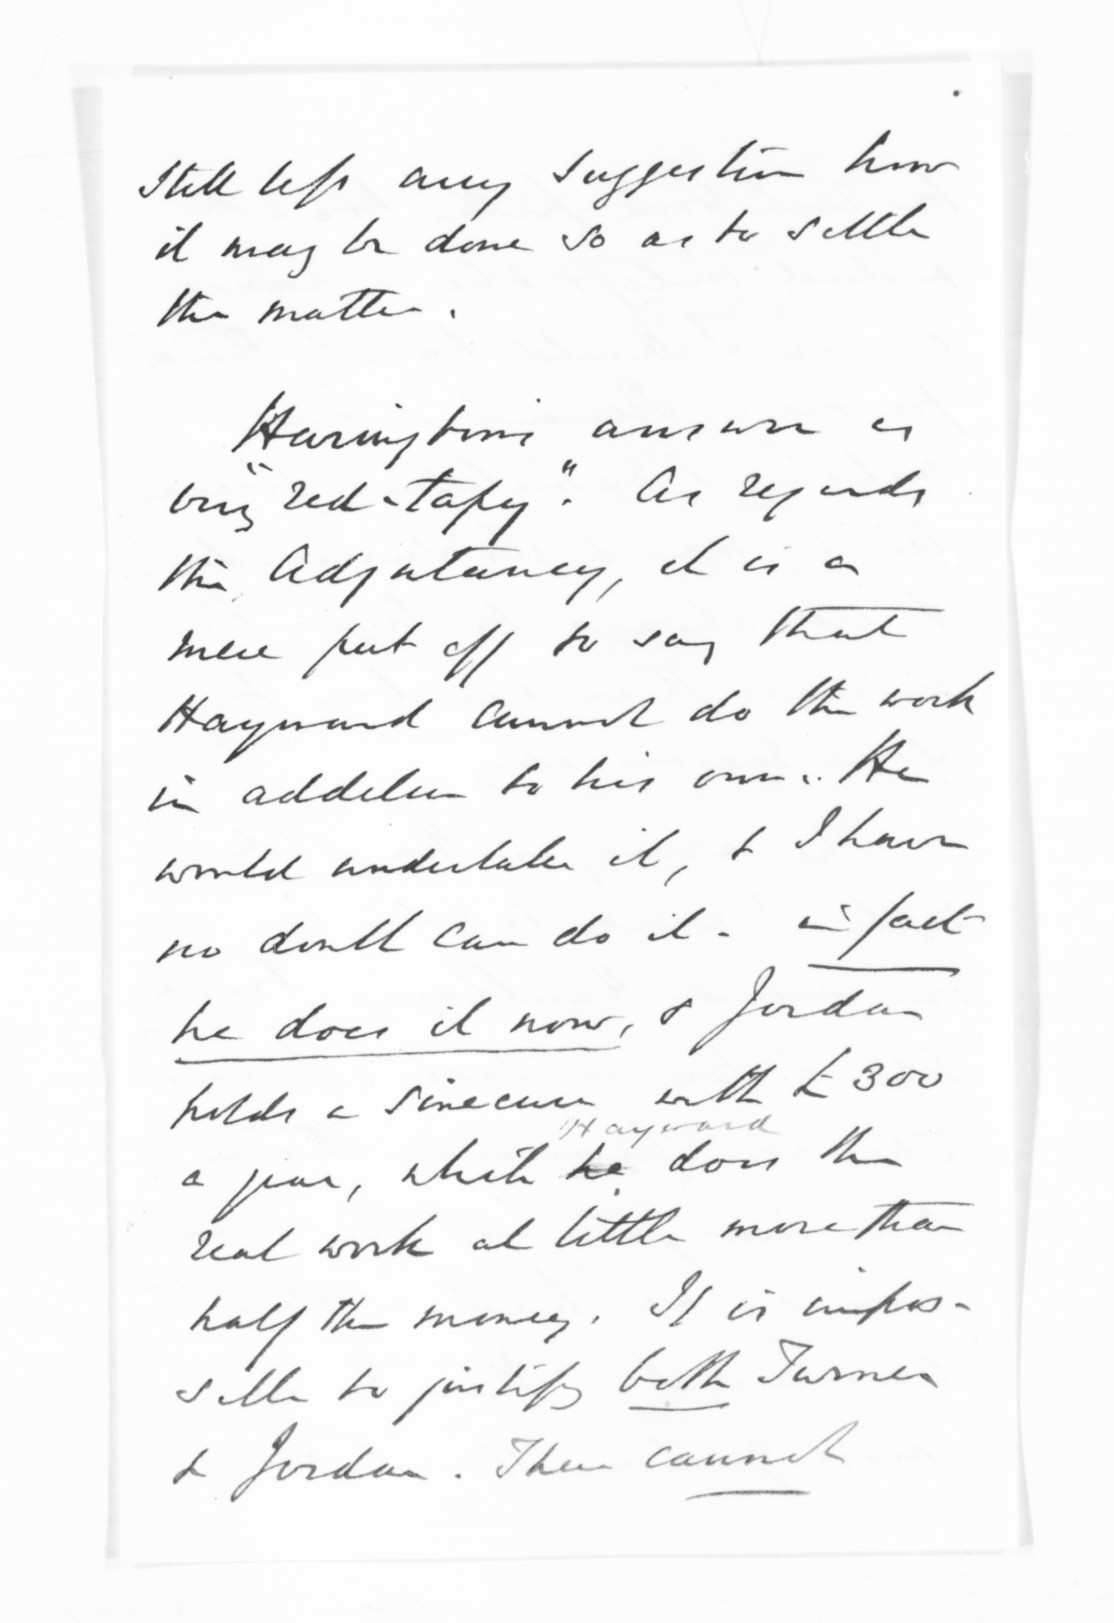 still less any suggestion how
it may be done so as to settle
the matter.
Harington's answer is
very "red-tapey". As regards
the Adjutancy, it is a
mere put off to say that
Hayward cannot do the work
in addition to his own. He
would undertake it, & I have
no doubt can do it - in fact
he does it now, & Jordan
holds a sinecure with £300
a year, while he Hayward does the
real work at little more than
half the money. It is impos-
sible to justify both Turner
& Jordan. There cannot